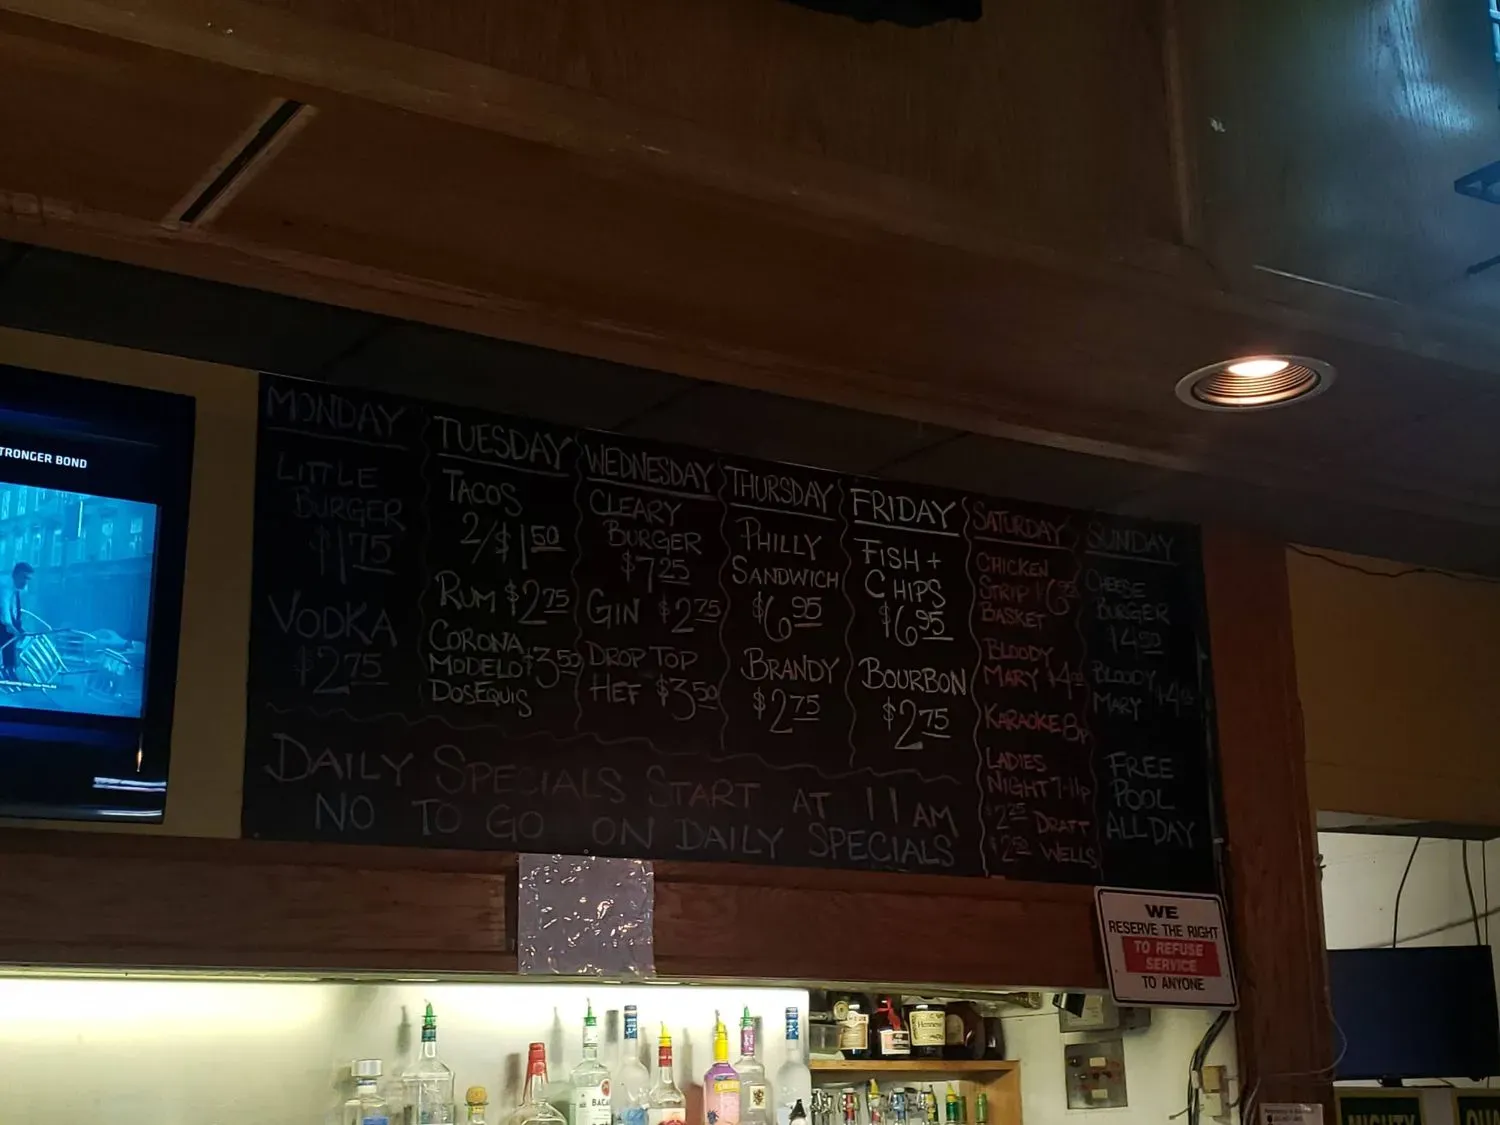 TRONGER BOND
MONDAY
LITTLE
BURGER
$1.75
VODKA
$2.75
TUESDAY
TACOS
2/$1.50
RUM $2.75
CORONA
MODELO $3.50
DOSEQUIS
WEDNESDAY
CLEARY
BURGER
$7.25
GIN $2.75
DROP TOP
HEF $3.50
THURSDAY
PHILLY
SANDWICH
$6.95
BRANDY
$2.75
FRIDAY
FISH +
CHIPS
$6.95
BOURBON
$2.75
SATURDAY
CHICKEN
STRIP
BASKET
BLOODY
MARY
KARAOKE 8p
LADIES
NIGHT 7-11p
$2.25 DRAFT
WELLS
SUNDAY
CHEESE
BURGER
BLOODY
MARY
FREE
POOL
ALL DAY
DAILY SPECIALS START AT 11AM
NO TO GO ON DAILY SPECIALS
WE
RESERVE THE RIGHT
TO REFUSE
SERVICE
TO ANYONE
BACA
Hennessy
MIGHTY